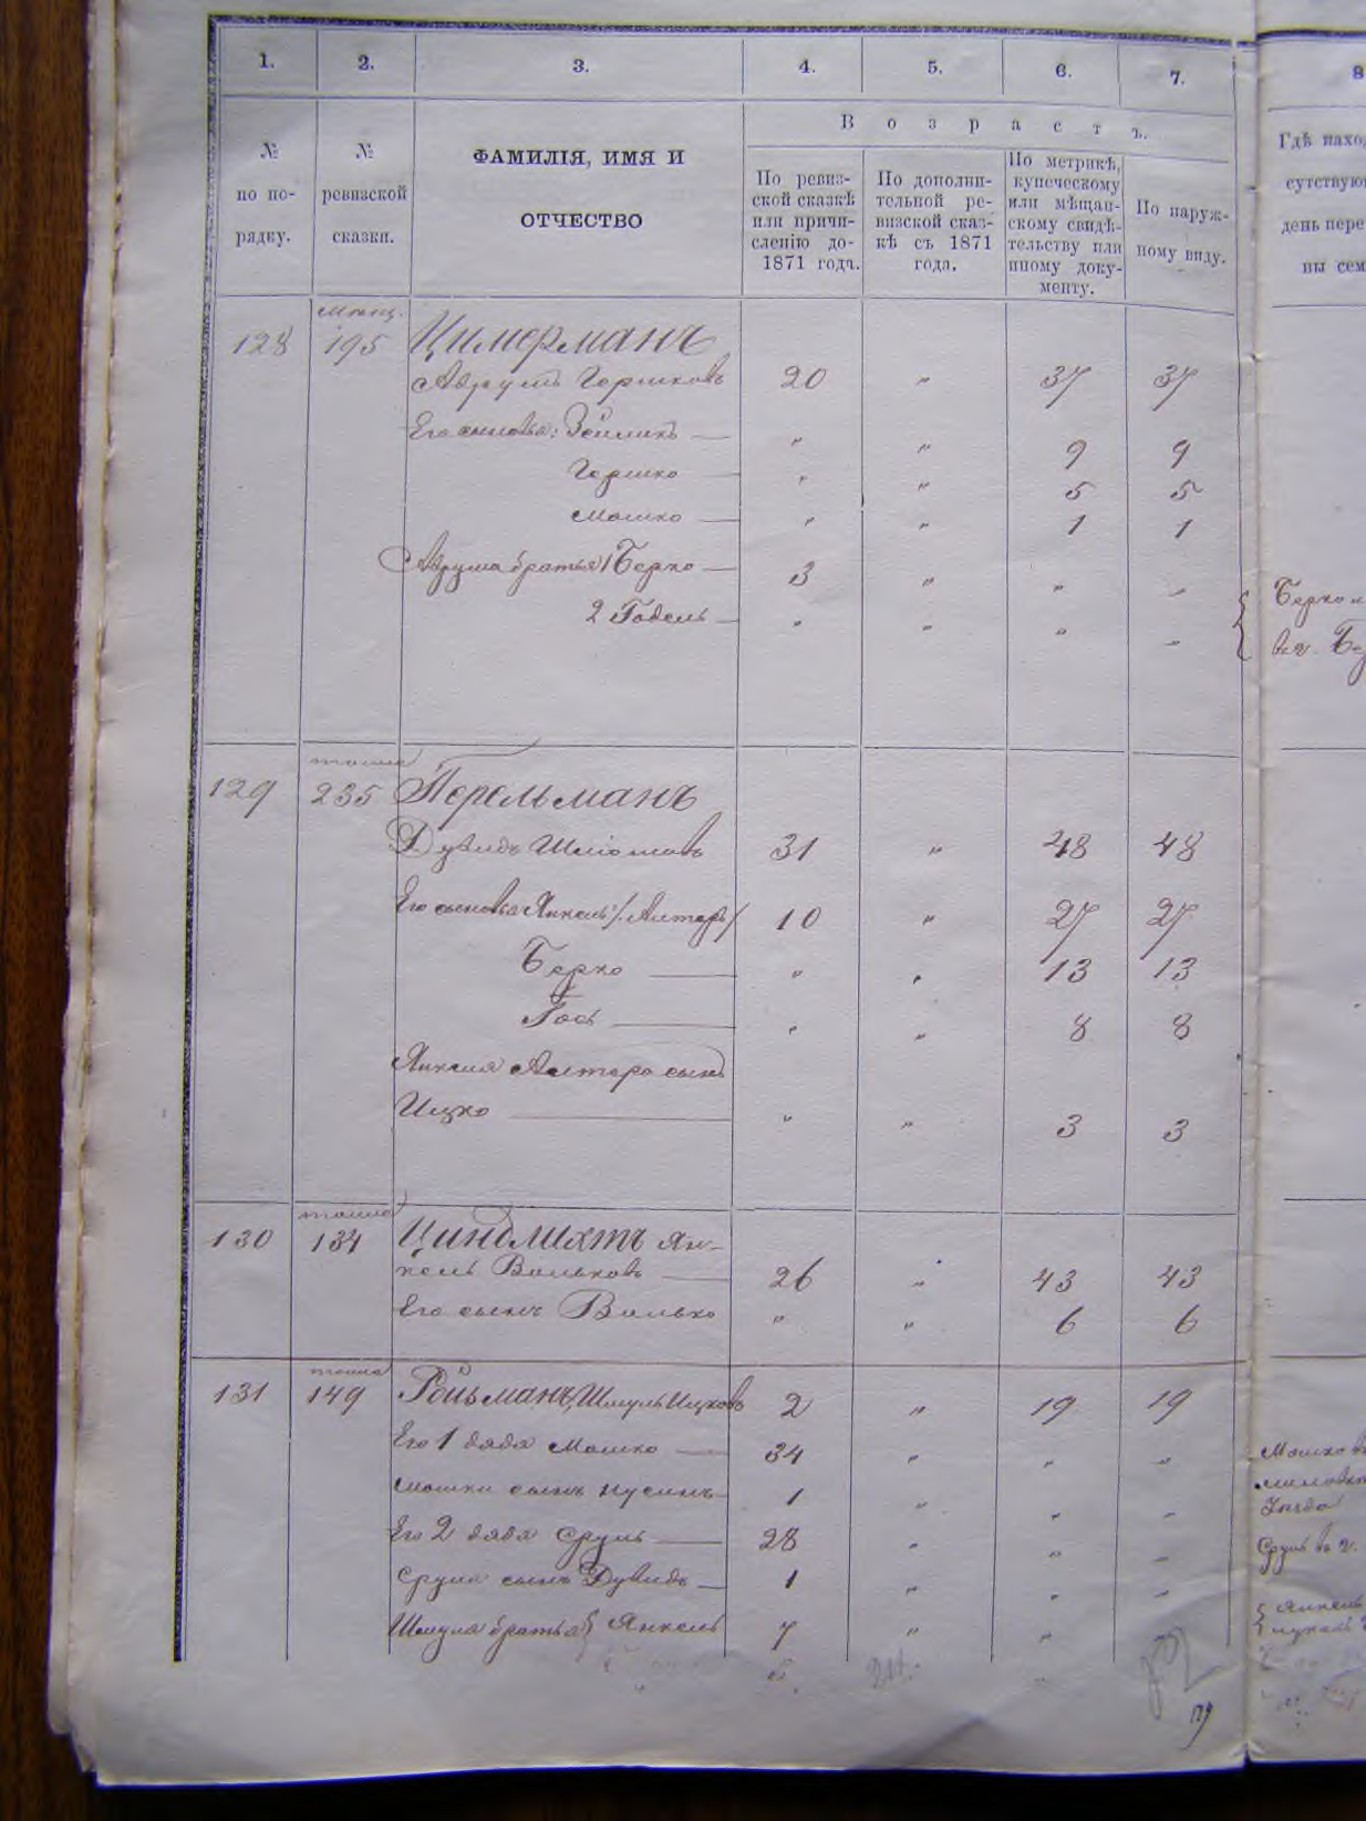 1. 2. 3. 4. 5. 6. 7. 8
№ по по-рядку.
№ ревизской сказки.
ФАМИЛІЯ, ИМЯ И
ОТЧЕСТВО
Возрастъ.
По ревиз-
ской сказкѣ
или причи-
сленію до-
1871 года.
По дополни-
тельной ре-
визской сказ-
кѣ съ 1871
года.
По метрикѣ,
купеческому
или мѣщан-
скому свидѣ-
тельству или
иному доку-
менту.
По наруж-
ному виду.
Гдѣ нахо
сутствую
день пере
ны сем
мѣщ.
128 195 Цимерманъ
Аврумъ Гершковъ 20 " 37 37
Его сыновья: Зейликъ — " " 9 9
Гершко — " " 5 5
Мошко — " " 1 1
Аврума братья 1 Берко — 3 " " "
Берко и
2 Годель — " " " "
въ г. Бе
тоже
129 235 Перельманъ
Дувидъ Шліомовъ 31 " 48 48
Его сыновья Янкель /Алтеръ/ 10 " 27 27
Берко — " " 13 13
Гось — " " 8 8
Янкеля Алтера сынъ
Ицко — " " 3 3
тоже
130 134 Циндлихтъ Ян-
кель Вольковъ — 26 " 43 43
Его сынъ Волько " " 6 6
тоже
131 149 Ройзманъ, Шмуль Ицковъ 2 " 19 19
Его 1 дядя Мошко — 34 " " "
Мошко в
Мошки сынъ Нусинъ — 1 " " "
Его 2 дядя Сруль — 28 " " "
Сруль въ г.
Сруля сынъ Дувидъ — 1 " " "
Шмуля братья { Янкель 7 " " "
Янкель